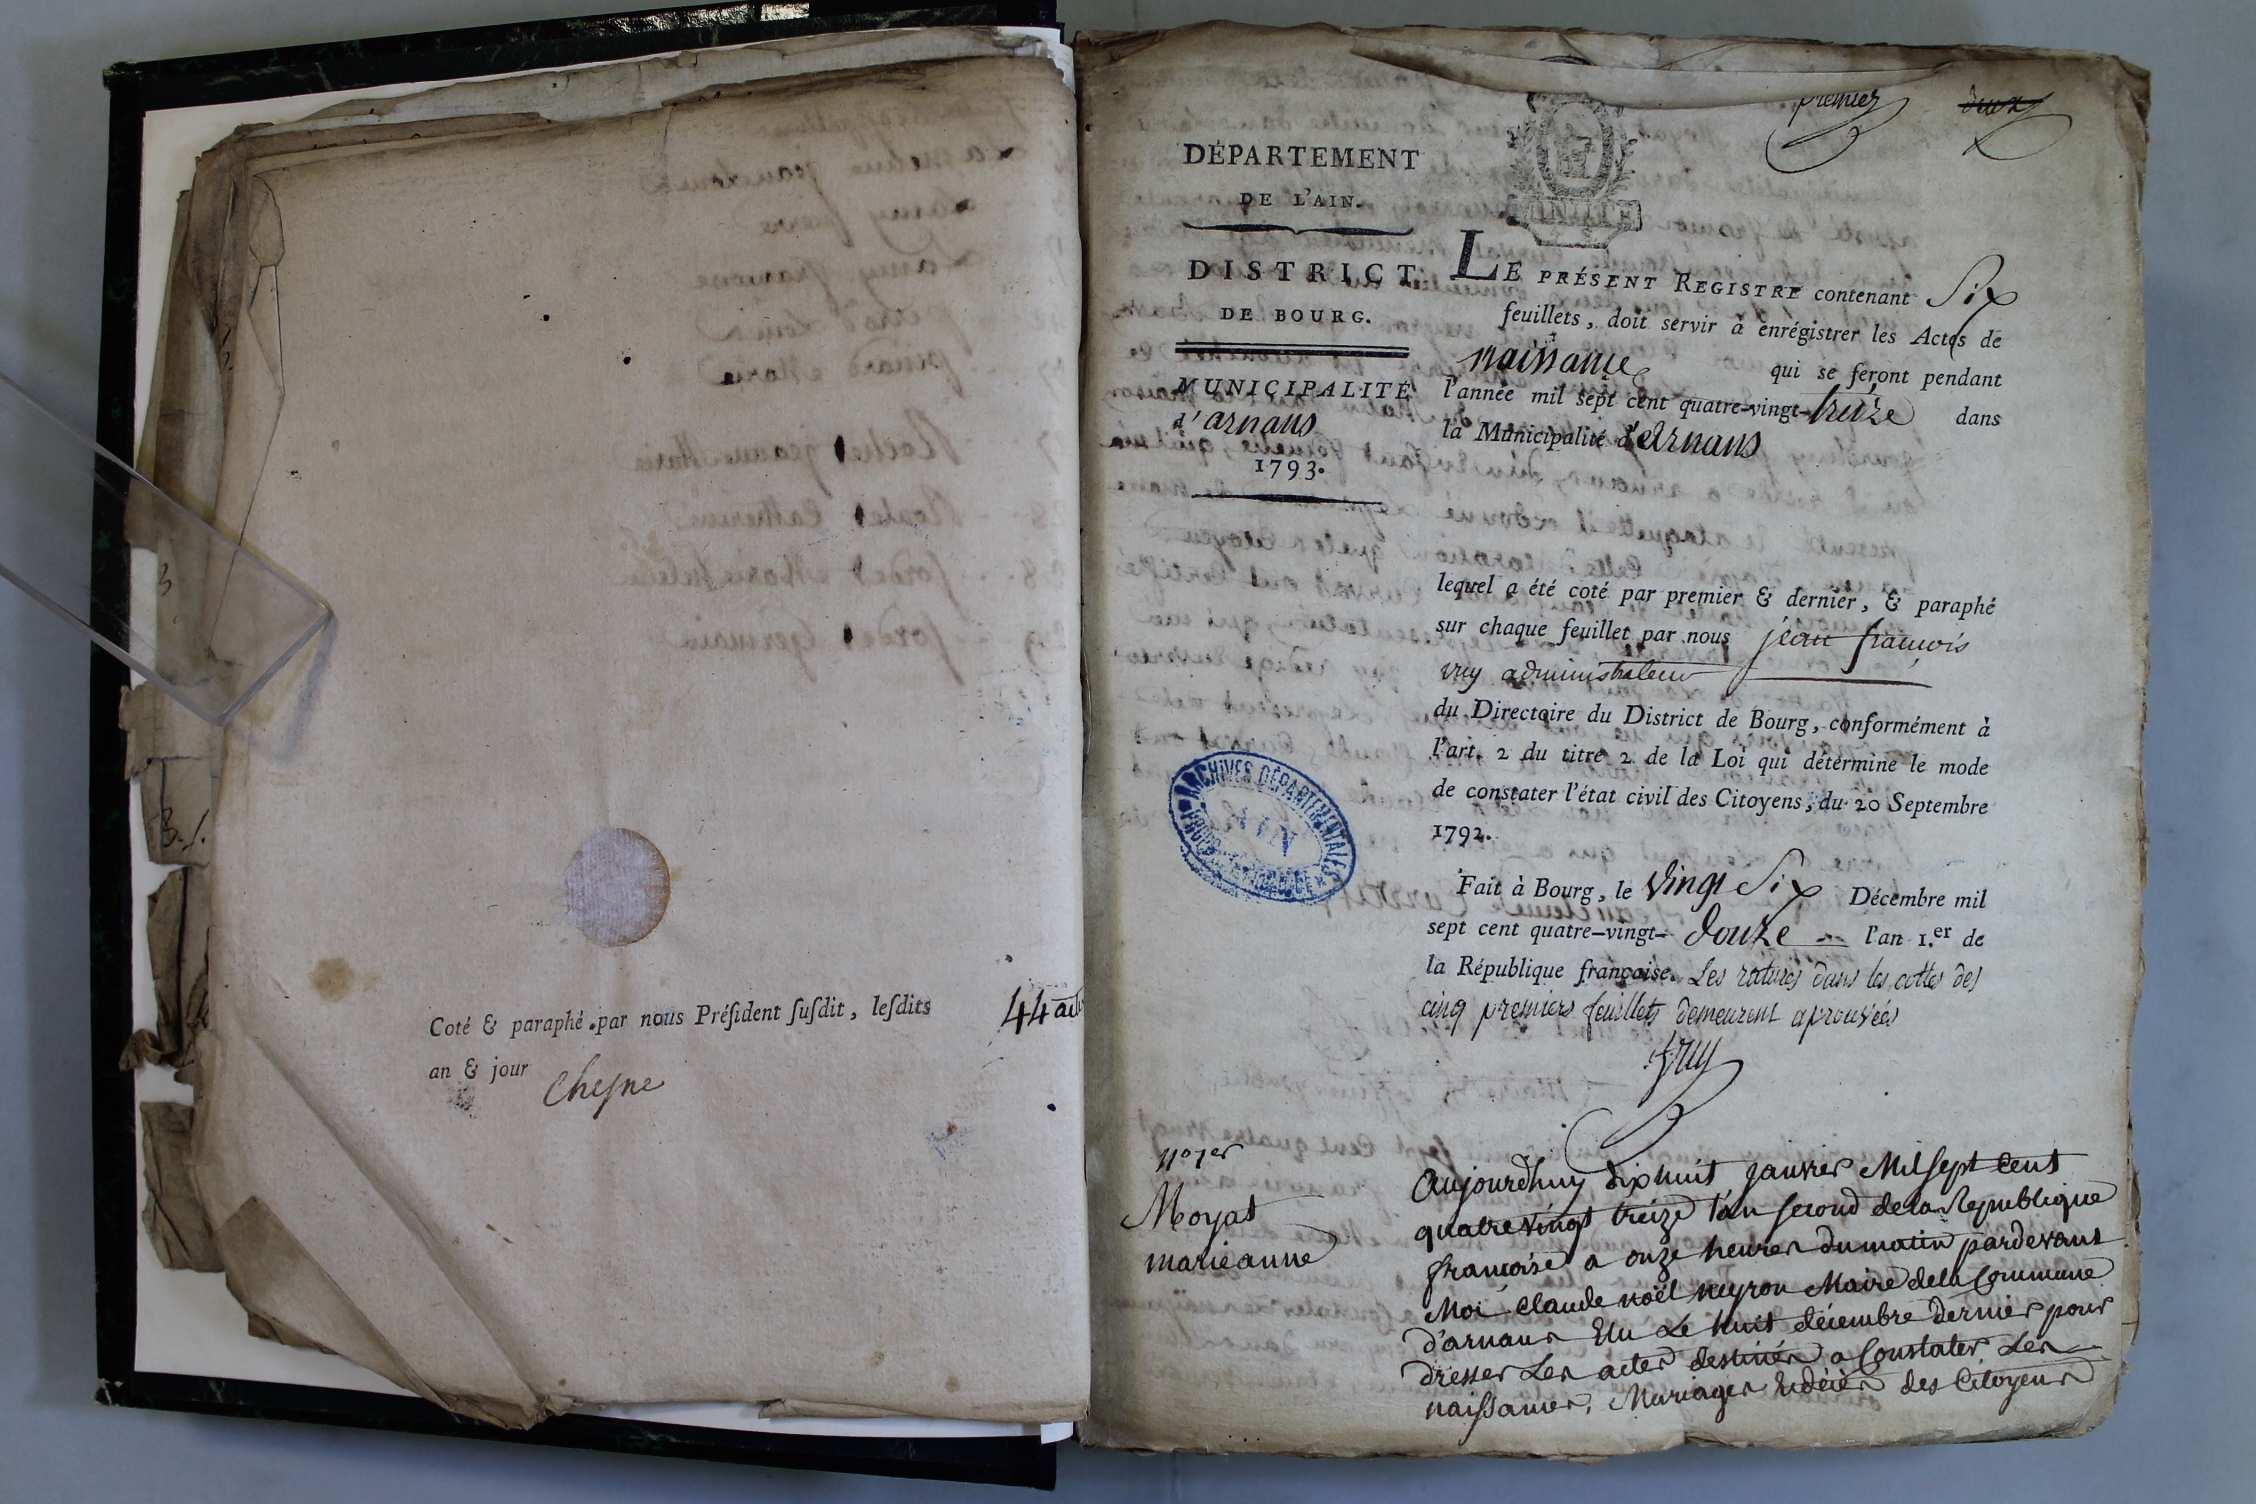 Coté & paraphé par nous Préſident ſuſdit, leſdits
an & jour
Chesne
44
premier
deux
DÉPARTEMENT
DE L'AIN.
DISTRICT
DE BOURG.
MUNICIPALITÉ
d'arnans
1793.
LE PRÉSENT REGISTRE contenant Six
feuillets, doit servir à enrégistrer les Actes de
naissance qui se feront pendant
l'année mil sept cent quatre-vingt-treize dans
la Municipalité d'Arnans
lequel a été coté par premier & dernier, & paraphé
sur chaque feuillet par nous jean françois
vuy administrateur
du Directoire du District de Bourg, conformément à
l'art. 2 du titre 2 de la Loi qui détermine le mode
de constater l'état civil des Citoyens, du 20 Septembre
1792.
ARCHIVES DÉPARTEMENTALES
AIN
Fait à Bourg, le vingt Six Décembre mil
sept cent quatre-vingt-douze l'an 1.er de
la République française. Les ratures dans les cottes des
cinq premiers feuillets demeurent aprouvées
Vuy
n° 1er
Moyat
marieanne
aujourdhuy dixhuit janvier Mil sept cent
quatre vingt treize l'an second de la Republique
francoise a onze heures du matin pardevant
Moi claude noël neyron Maire de la Commune
d'arnans Elu Le huit décembre dernier pour
dresser Les actes destinés a Constater Les
naissances, Mariages & décès des Citoyens